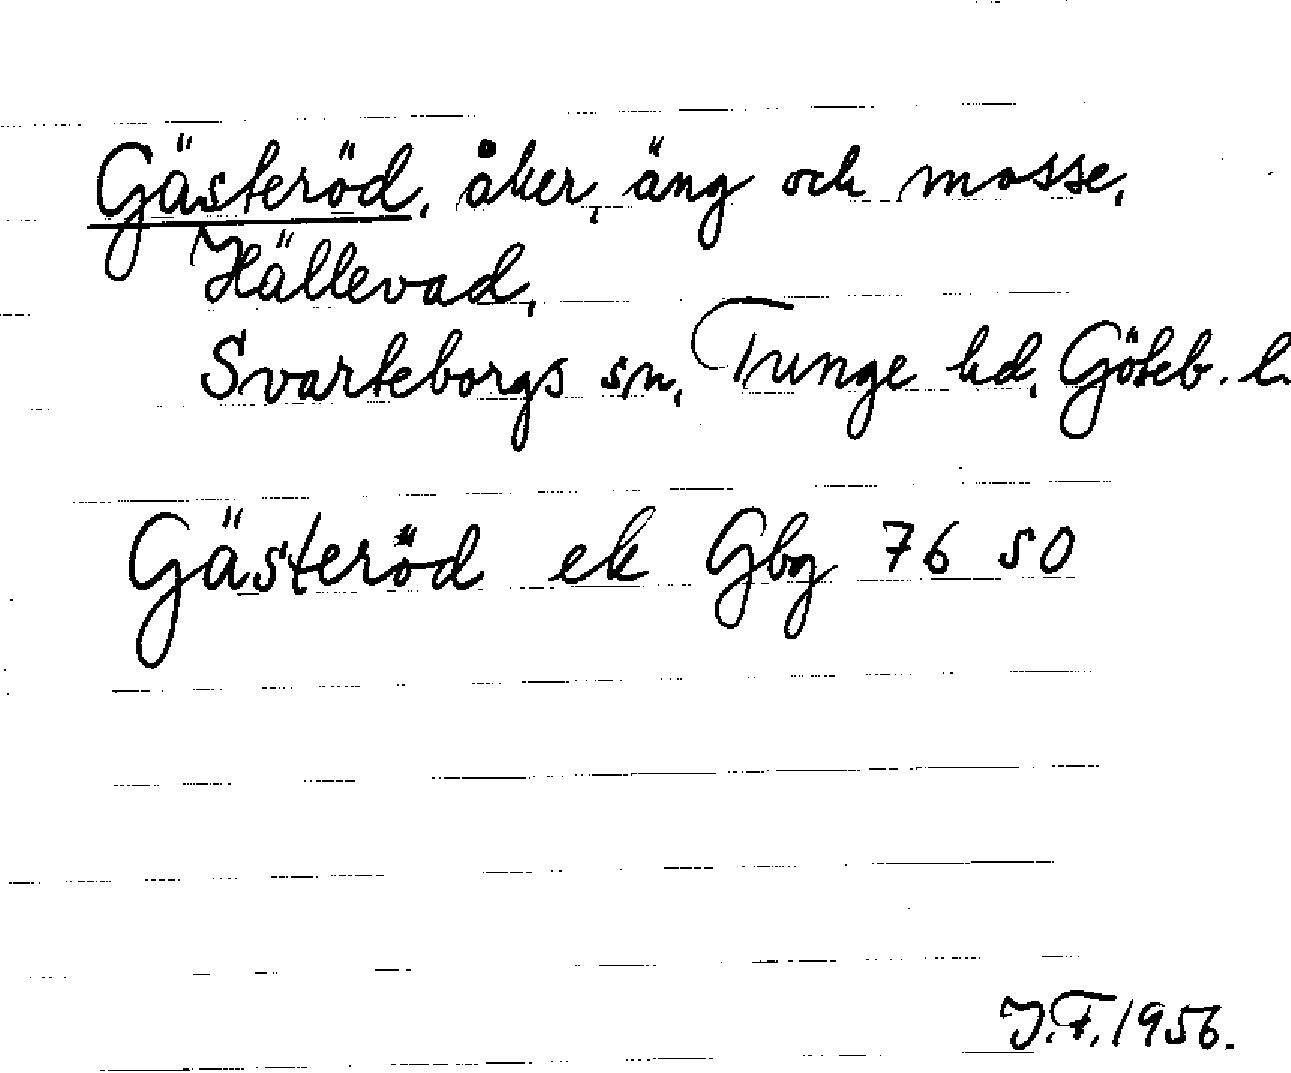 Gästeröd, åker, äng och mosse,
Hällevad,
Svarteborgs sn, Tunge hd, Göteb. l.
Gästeröd ek Gbg 76 50
J.F. 1956.